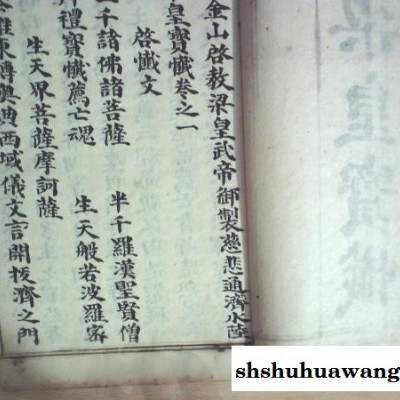 金山啓教梁皇武帝御製慈悲通濟水陸
皇寶懺卷之一
啓懺文
千諸佛諸菩薩 半千羅漢聖賢僧
禮寶懺薦亡魂 生天般若波羅蜜
生天界菩薩摩訶薩
東傳與典西域儀文言開拔濟之門
shshuhuawang